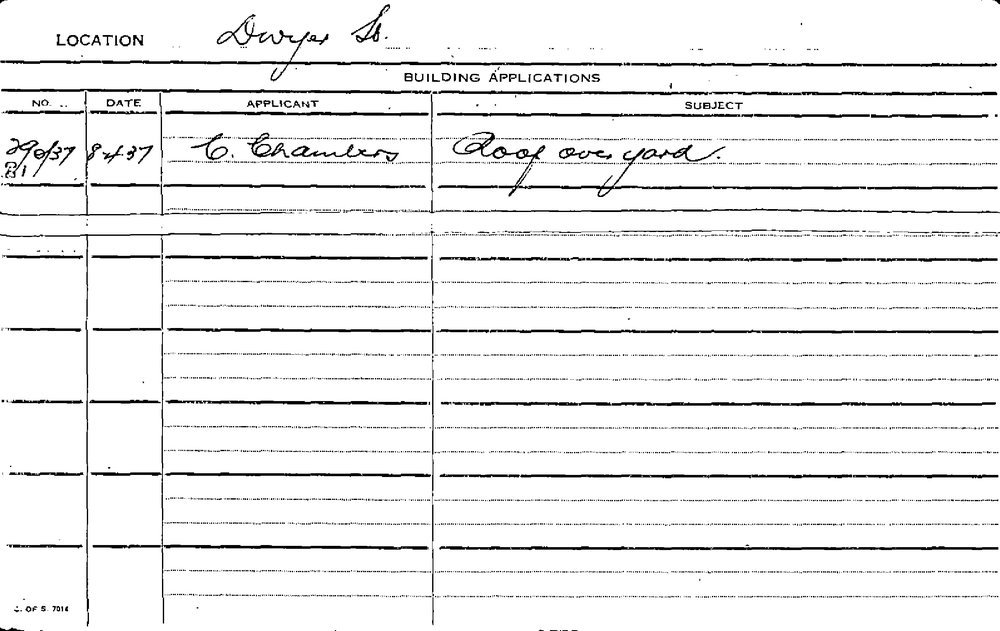 LOCATION Dwyer St.
BUILDING APPLICATIONS
NO. DATE APPLICANT SUBJECT
290/37 8-4-37 C. Chambers Roof over yard.
B1
C. OF S. 7014